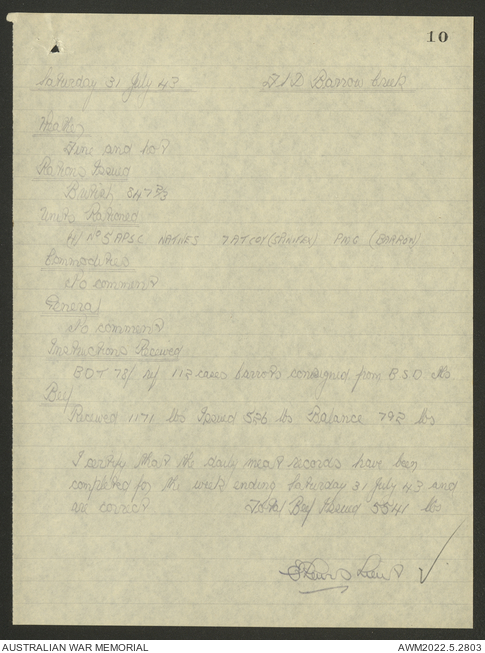 10
Saturday 31 July 43 FSD Barrow Creek
Weather
Fine and hot
Rations Issued
British 847
Units Rationed
H/ NATIVES 7 AT COY PMG (BARROW)
Commodities
No comment
General
No comment
Instructions Received
BDT 78/ ref 112 cases carrots consigned from BSD
Beef
Received 1171 lbs Issued 526 lbs Balance 792 lbs
I certify that the daily meat records have been
completed for the week ending Saturday 31 July 43 and
are correct Total Beef Issued 5541 lbs
Lieut
AUSTRALIAN WAR MEMORIAL
AWM2022.5.2803